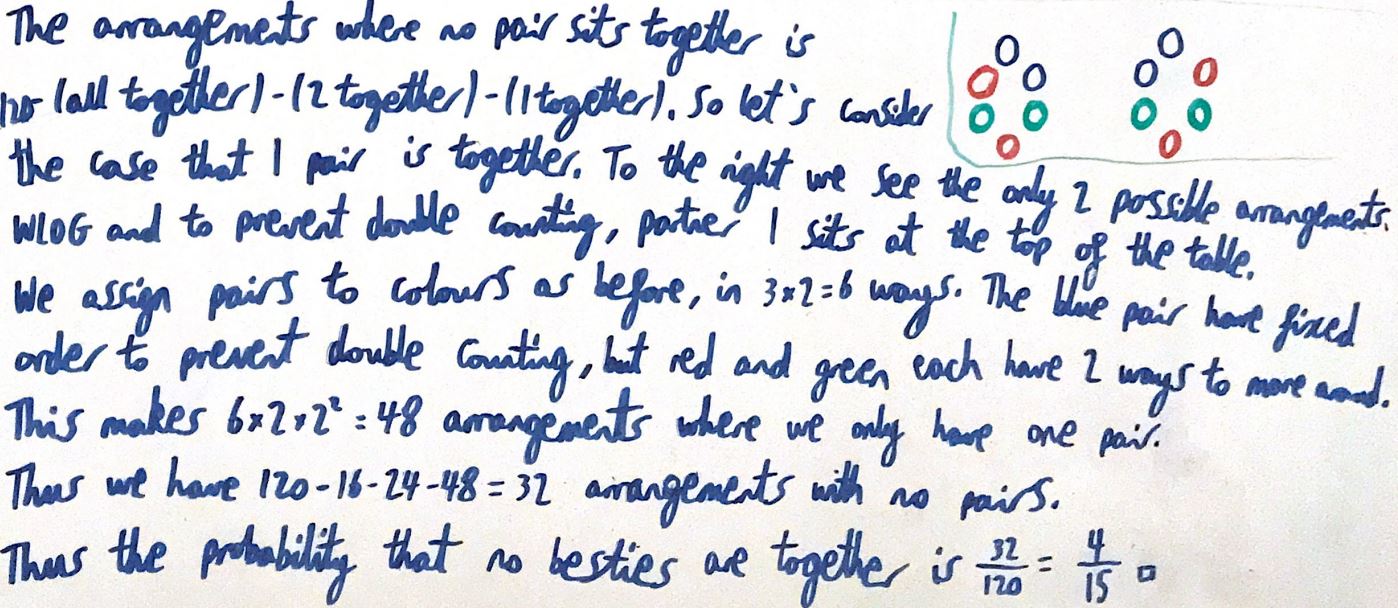 The arrangements where no pair sits together is
120-(all together)-(2 together)-(1 together). So let's consider
the case that 1 pair is together. To the right we see the only 2 possible arrangements.
WLOG and to prevent double counting, partner 1 sits at the top of the table.
We assign pairs to colours as before, in 3×2=6 ways. The blue pair have fixed
order to prevent double counting, but red and green each have 2 ways to move around.
This makes 6×2×2²=48 arrangements where we only have one pair.
Thus we have 120-16-24-48=32 arrangements with no pairs.
Thus the probability that no besties are together is 32/120 = 4/15 □